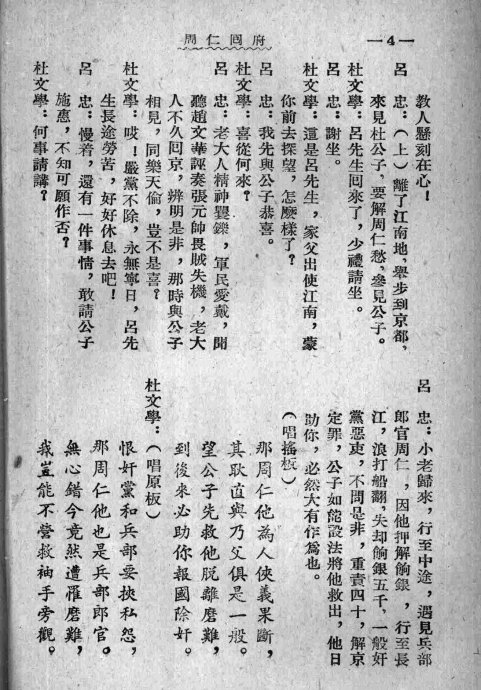 —4—
周仁囘府
教人懸刻在心！
呂　忠：（上）離了江南地，舉步到京都，
來見杜公子，要解周仁愁，參見公子。
杜文學：呂先生回來了，少禮請坐。
呂　忠：謝坐。
杜文學：這是呂先生，家父出使江南，蒙
你前去探望，怎麼樣了？
呂　忠：我先與公子恭喜。
杜文學：喜從何來？
呂　忠：老大人精神矍鑠，軍民愛戴，聞
聽趙文華誣奏張元帥畏賊失機，老大
人不久回京，辨明是非，那時與公子
相見，同樂天倫，豈不是喜？
杜文學：哎！嚴黨不除，永無寧日，呂先
生長途勞苦，好好休息去吧！
呂　忠：慢着，還有一件事情，敢請公子
施惠，不知可願作否？
杜文學：何事請講？
呂　忠：小老歸來，行至中途，遇見兵部
郎官周仁，因他押解餉銀，行至長
江，浪打船翻，失却餉銀五千，一般奸
黨惡吏，不問是非，重責四十，解京
定罪，公子如能設法將他救出，他日
助你，必然大有作為也。
（唱搖板）
那周仁他為人俠義果斷，
其耿直與乃父俱是一般。
望公子先救他脫離磨難，
到後來必助你報國除奸。
杜文學：（唱原板）
恨奸黨和兵部要挾私怨，
那周仁他也是兵部郎官。
無心錯今竟然遭罹磨難，
我豈能不營救袖手旁觀。